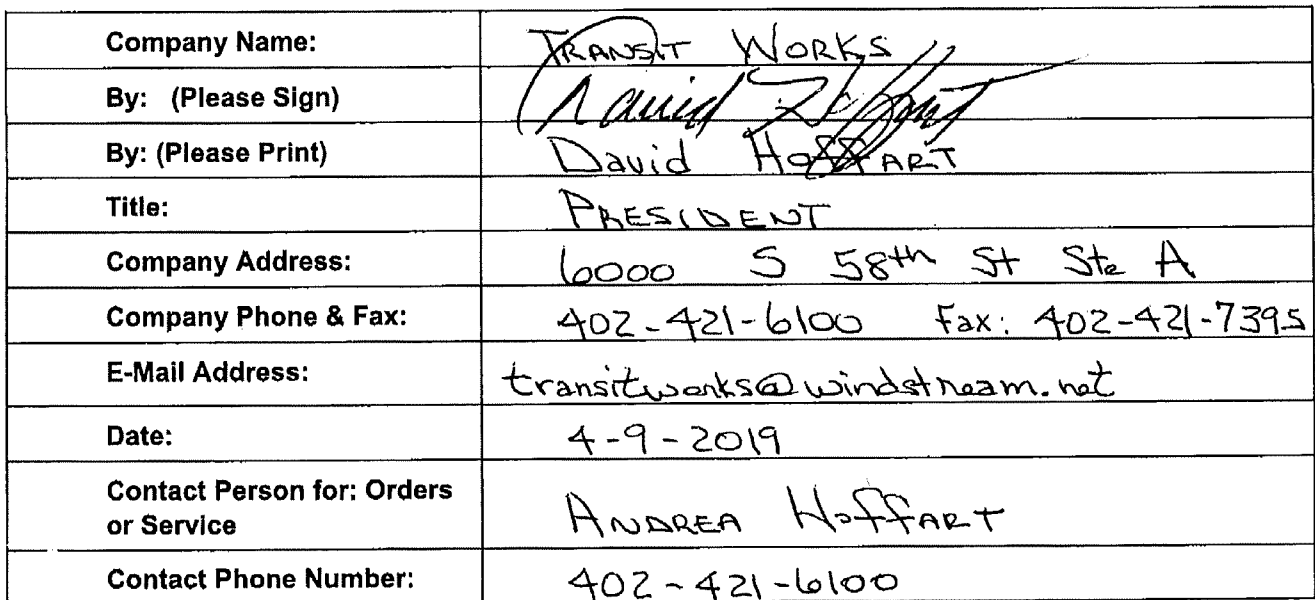 Company Name: TRANSIT WORKS
By: (Please Sign) David Hoffart
By: (Please Print) David HoffART
Title: PRESIDENT
Company Address: 6000 S 58th St Ste A
Company Phone & Fax: 402-421-6100 Fax: 402-421-7395
E-Mail Address: transitworks@windstream.net
Date: 4-9-2019
Contact Person for: Orders
or Service ANDREA HoffART
Contact Phone Number: 402-421-6100